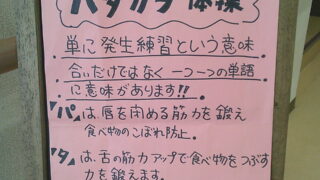 パタカラ体操
単に発生練習という意味
合いだけではなく一つ一つの単語
に意味があります!!
「パ」は、唇を閉める筋力を鍛え
食べ物のこぼれ防止。
「タ」は、舌の筋力アップで食べ物をつぶす
力を鍛えます。